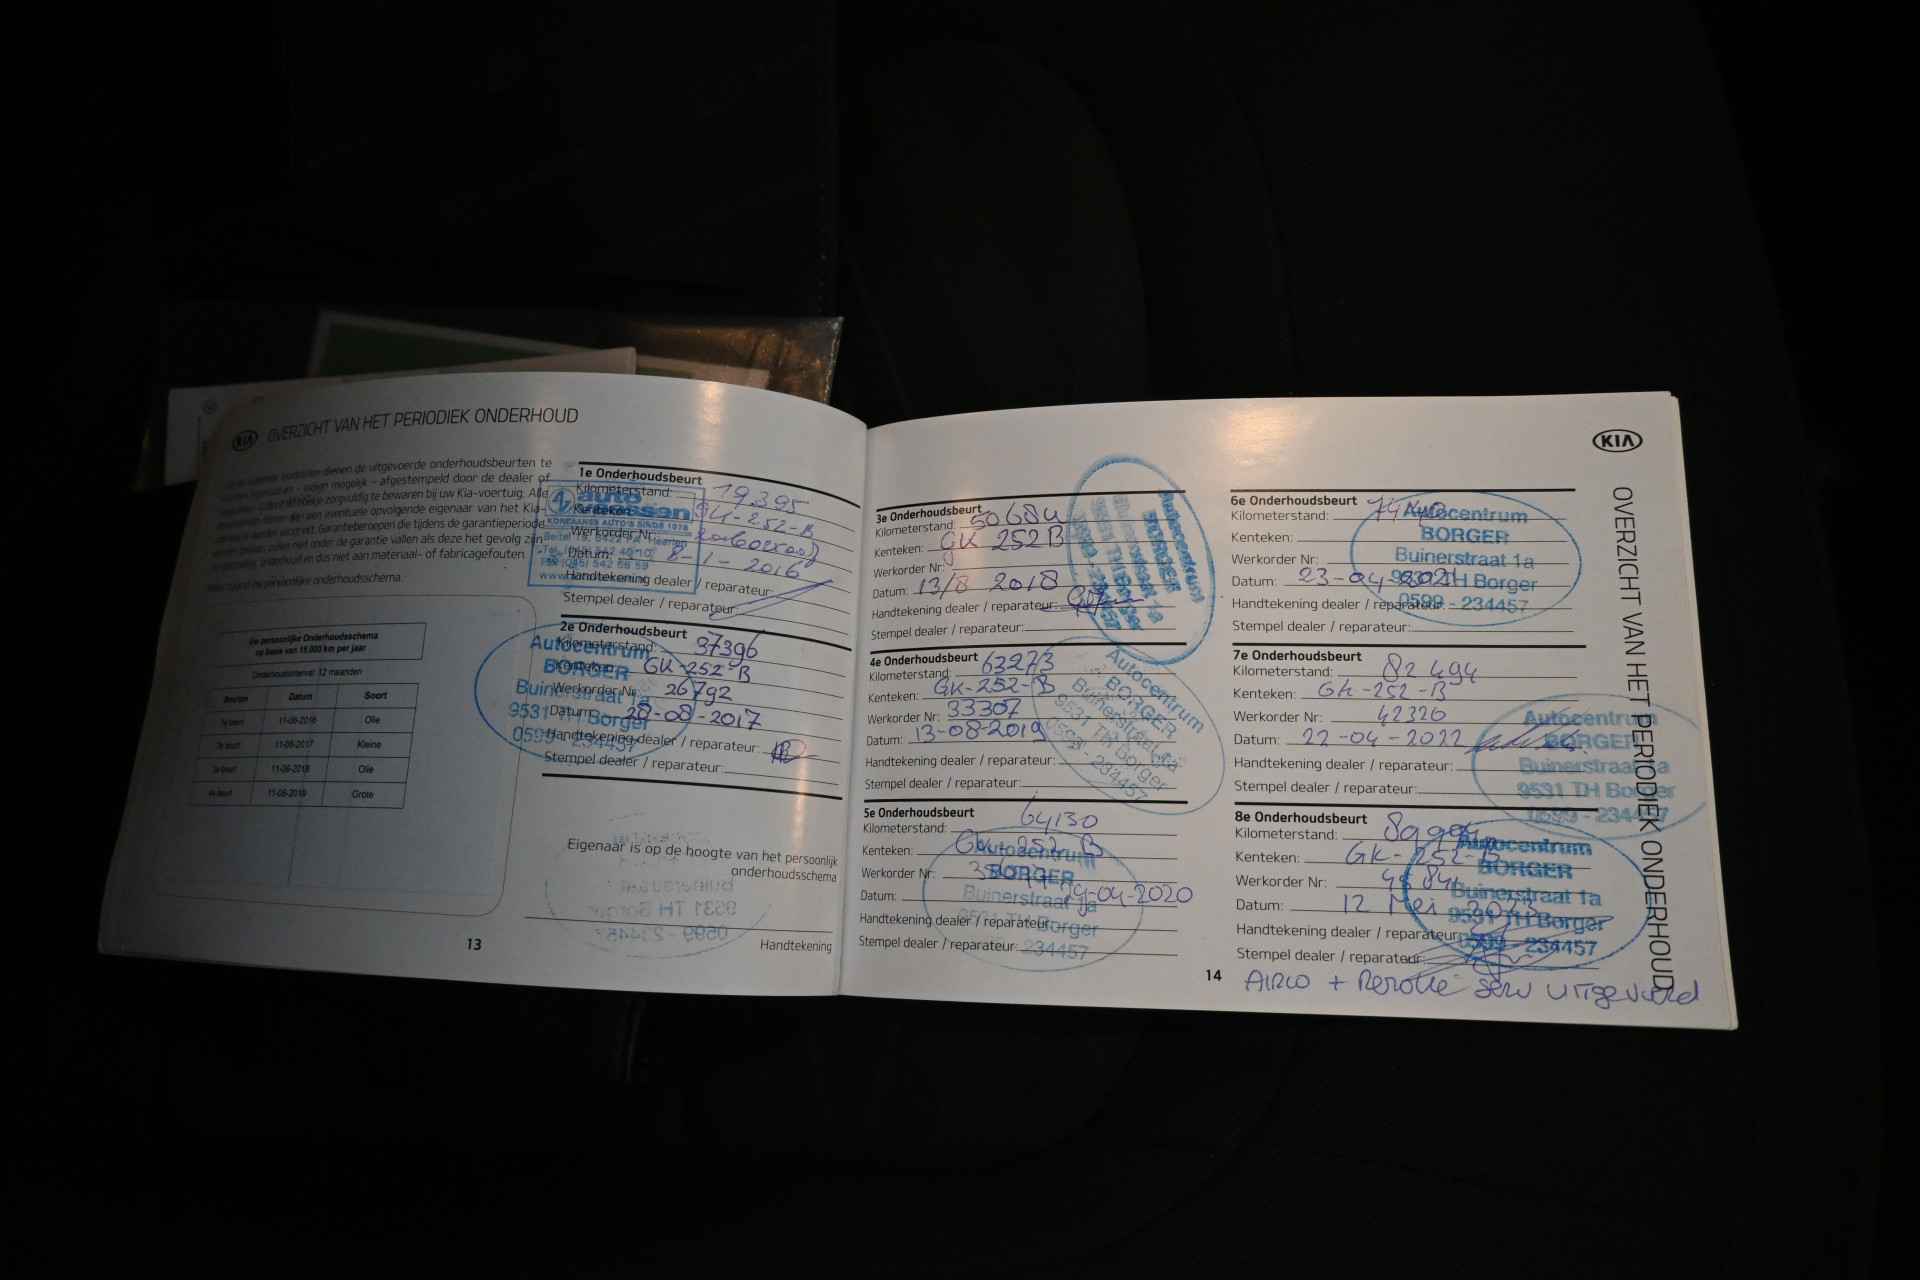 KIA OVERZICHT VAN HET PERIODIEK ONDERHOUD
dienen de uitgevoerde onderhoudsbeurten te
mogelijk – afgestempeld door de dealer of
zorgvuldig te bewaren bij uw Kia-voertuig. Alle
een eventuele opvolgende eigenaar van het Kia-
Garantieberoepen die tijdens de garantieperiode
niet onder de garantie vallen als deze het gevolg zijn
onderhoud en dus niet aan materiaal- of fabricagefouten.
persoonlijke onderhoudsschema.
Uw persoonlijke Onderhoudsschema
op basis van 15.000 km per jaar
Onderhoudsinterval: 12 maanden
Beurten Datum Soort
1e beurt 11-06-2016 Olie
2e beurt 11-06-2017 Kleine
3e beurt 11-06-2018 Olie
4e beurt 11-06-2019 Grote
1e Onderhoudsbeurt
Kilometerstand: 19.395
Kenteken: GK-252-B
Werkorder Nr:
Datum: 8-1-2016
Handtekening dealer / reparateur:
Stempel dealer / reparateur:
auto
KOREAANSE AUTO'S SINDS 1978
Heerlen
www.
2e Onderhoudsbeurt
Kilometerstand: 37396
Kenteken: GK-252-B
Werkorder Nr: 26792
Datum: 28-08-2017
Handtekening dealer / reparateur:
Stempel dealer / reparateur:
Autocentrum
BORGER
Buinerstraat 1a
9531 TH Borger
0599 - 234457
Eigenaar is op de hoogte van het persoonlijk
onderhoudsschema
Handtekening
13
3e Onderhoudsbeurt
Kilometerstand: 50684
Kenteken: GK 252 B
Werkorder Nr:
Datum: 13/8 2018
Handtekening dealer / reparateur:
Stempel dealer / reparateur:
Autocentrum
BORGER
Buinerstraat 1a
9531 TH Borger
0599 - 234457
4e Onderhoudsbeurt
Kilometerstand: 63273
Kenteken: GK-252-B
Werkorder Nr: 33307
Datum: 13-08-2019
Handtekening dealer / reparateur:
Stempel dealer / reparateur:
Autocentrum
BORGER
Buinerstraat 1a
9531 TH Borger
0599 - 234457
5e Onderhoudsbeurt
Kilometerstand: 64130
Kenteken: GK 252 B
Werkorder Nr:
Datum: 14-04-2020
Handtekening dealer / reparateur:
Stempel dealer / reparateur:
Autocentrum
BORGER
Buinerstraat 1a
9531 TH Borger
234457
14
KIA
OVERZICHT VAN HET PERIODIEK ONDERHOUD
6e Onderhoudsbeurt
Kilometerstand:
Kenteken:
Werkorder Nr:
Datum: 23-04-2021
Handtekening dealer / reparateur:
Stempel dealer / reparateur:
Autocentrum
BORGER
Buinerstraat 1a
9531 TH Borger
0599 - 234457
7e Onderhoudsbeurt
Kilometerstand: 82494
Kenteken: GK-252-B
Werkorder Nr: 42320
Datum: 22-04-2022
Handtekening dealer / reparateur:
Stempel dealer / reparateur:
Autocentrum
BORGER
Buinerstraat 1a
9531 TH Borger
0599 - 234457
8e Onderhoudsbeurt
Kilometerstand:
Kenteken: GK-252-B
Werkorder Nr:
Datum: 12 Mei 2023
Handtekening dealer / reparateur:
Stempel dealer / reparateur:
Autocentrum
BORGER
Buinerstraat 1a
9531 TH Borger
0599 - 234457
Airco + uitgevoerd